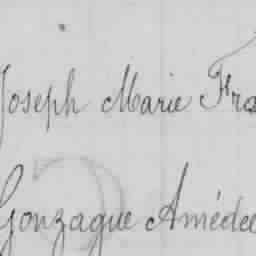 Joseph Marie Fra
Gonzague Amédée